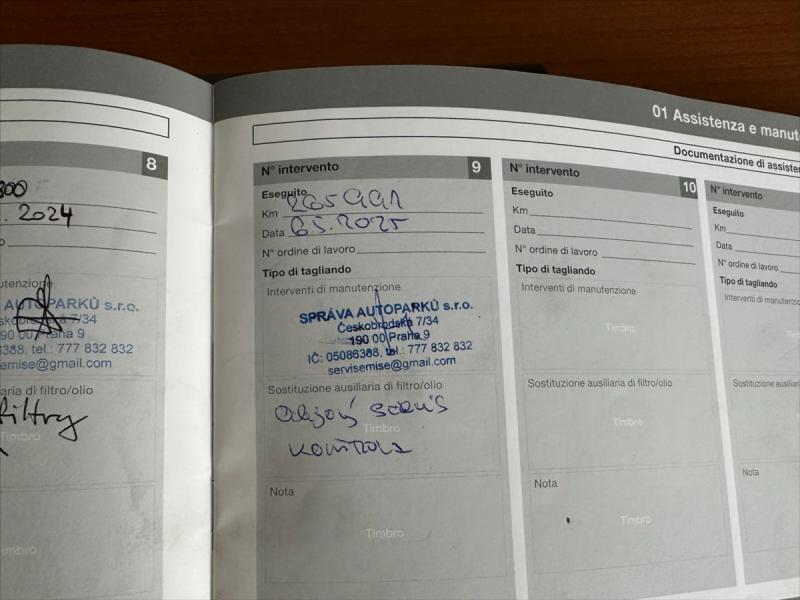 01 Assistenza e manut
Documentazione di assiste
8
. 2024
utenzione
AUTOPARKŮ s.r.o.
7/34
190 00 Praha 9
tel.: 777 832 832
semise@gmail.com
aria di filtro/olio
filtry
Timbro
Timbro
N° intervento 9
Eseguito
Km 205991
Data 6.5.2025
N° ordine di lavoro
Tipo di tagliando
Interventi di manutenzione
SPRÁVA AUTOPARKŮ s.r.o.
Českobrodská 7/34
190 00 Praha 9
IČ: 05086388, tel.: 777 832 832
servisemise@gmail.com
Sostituzione ausiliaria di filtro/olio
Olejový servis
Timbro
kontrola
Nota
Timbro
N° intervento 10
Eseguito
Km
Data
N° ordine di lavoro
Tipo di tagliando
Interventi di manutenzione
Timbro
Sostituzione ausiliaria di filtro/olio
Timbro
Nota
Timbro
N° intervento
Eseguito
Km
Data
N° ordine di lavoro
Tipo di tagliando
Interventi di manutenzio
Sostituzione ausiliaria di
Nota